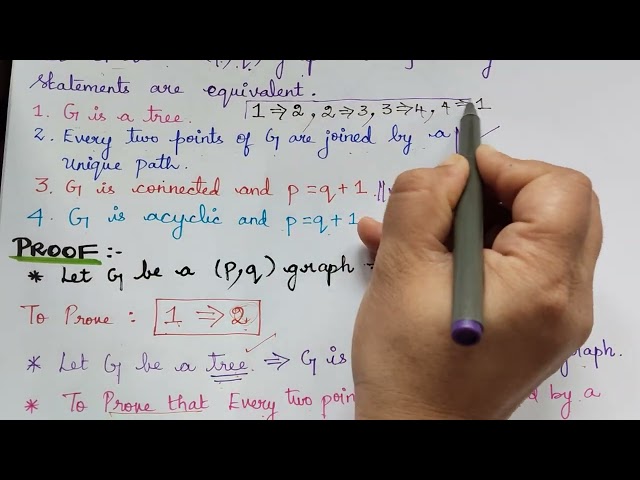 statements are equivalent.
1. G is a tree. 1 ⇒ 2, 2 ⇒ 3, 3 ⇒ 4, 4 ⇒ 1
2. Every two points of G are joined by a
unique path.
3. G is connected and p = q + 1
4. G is acyclic and p = q + 1
PROOF :-
* Let G be a (p, q) graph
To Prove : 1 ⇒ 2
* Let G be a tree. ⇒ G is graph.
* To Prove that Every two by a